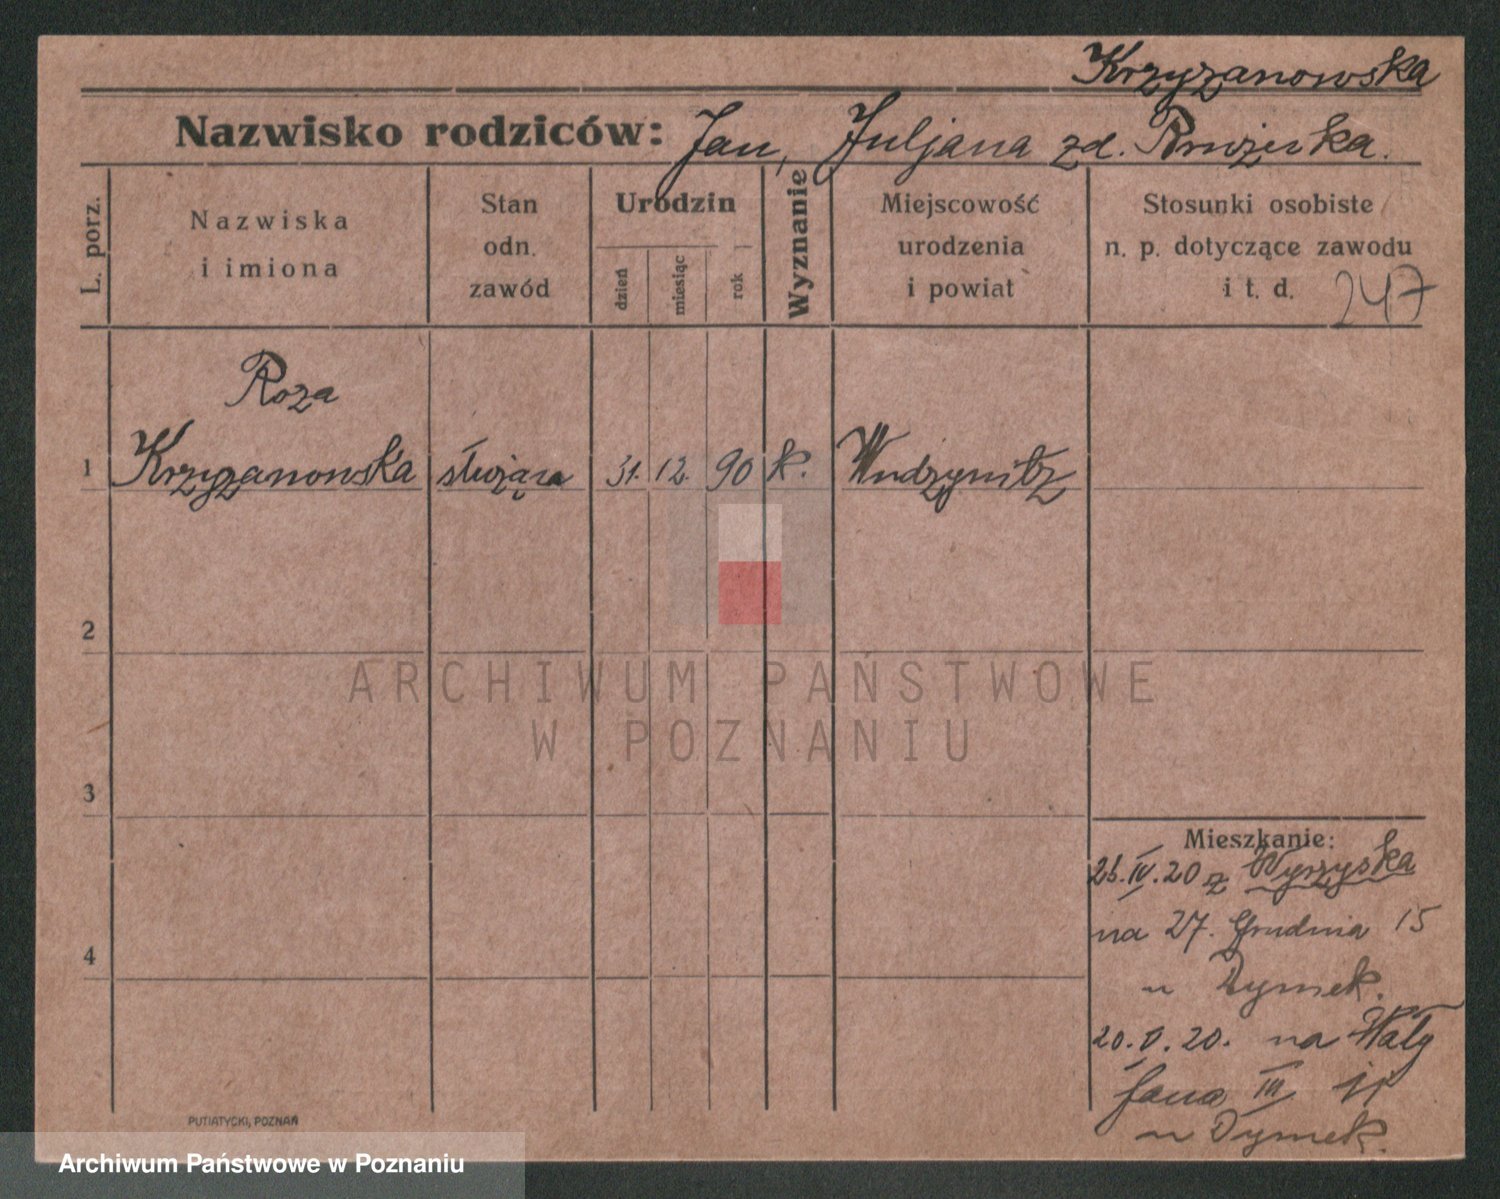 Krzyzanowska
Nazwisko rodziców: Jan, Juljana zd.
L. porz.
Nazwiska
i imiona
Stan
odn.
zawód
Urodzin
dzień
miesiąc
rok
Wyznanie
Miejscowość
urodzenia
i powiat
Stosunki osobiste
n. p. dotyczące zawodu
i t. d. 247
Roza
1 Krzyzanowska służąca 31. 12. 90 k.
2
ARCHIWUM PAŃSTWOWE
W POZNANIU
3
Mieszkanie:
IV. 20 z Wyrzyska
na 27. Grudnia 15
4
u Dymek.
20. V. 20. na Wały
Jana III 11
u Dymek.
PUTIATYCKI, POZNAŃ
Archiwum Państwowe w Poznaniu